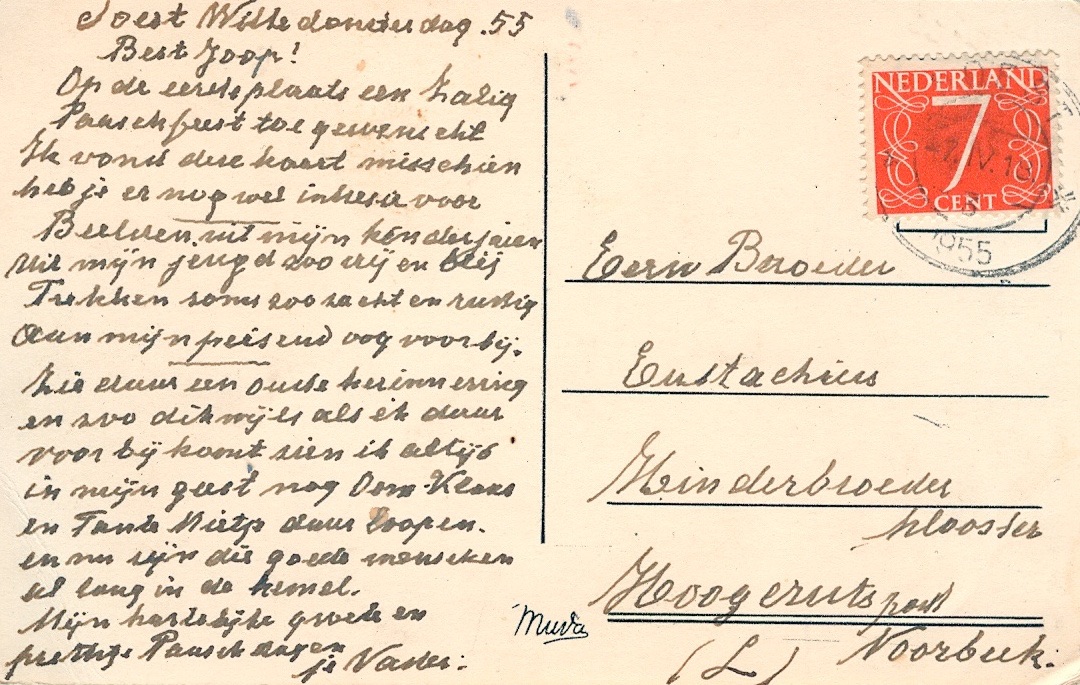 Soest Witte donderdag .55
Best Joop!
Op de eerste plaats een Zalig
Paaschfeest toegewenscht
Ik vond deze kaart misschien
heb je er nog wel interesse voor
Beelden uit mijn kinderjaren
Uit mijn jeugd zoo vrij en blij
Trekken soms zoo zacht en rustig
Aan mijn peisend oog voorbij.
Zie daar een oude herinnering
en zoo dikwijls als ik daar
voorbij komt zien ik altijd
in mijn geest nog Oom Klaas
en Tante Mietje daar loopen.
en nu zijn die goede menschen
al lang in de hemel.
Mijn hartelijke groete en
prettige Paaschdagen
je Vader.
Muva
NEDERLAND
7
CENT
IV.18
1955
Eerw Broeder
Eustachius
Minderbroeder
klooster
Hoogcruts post
Noorbeek.
(L)